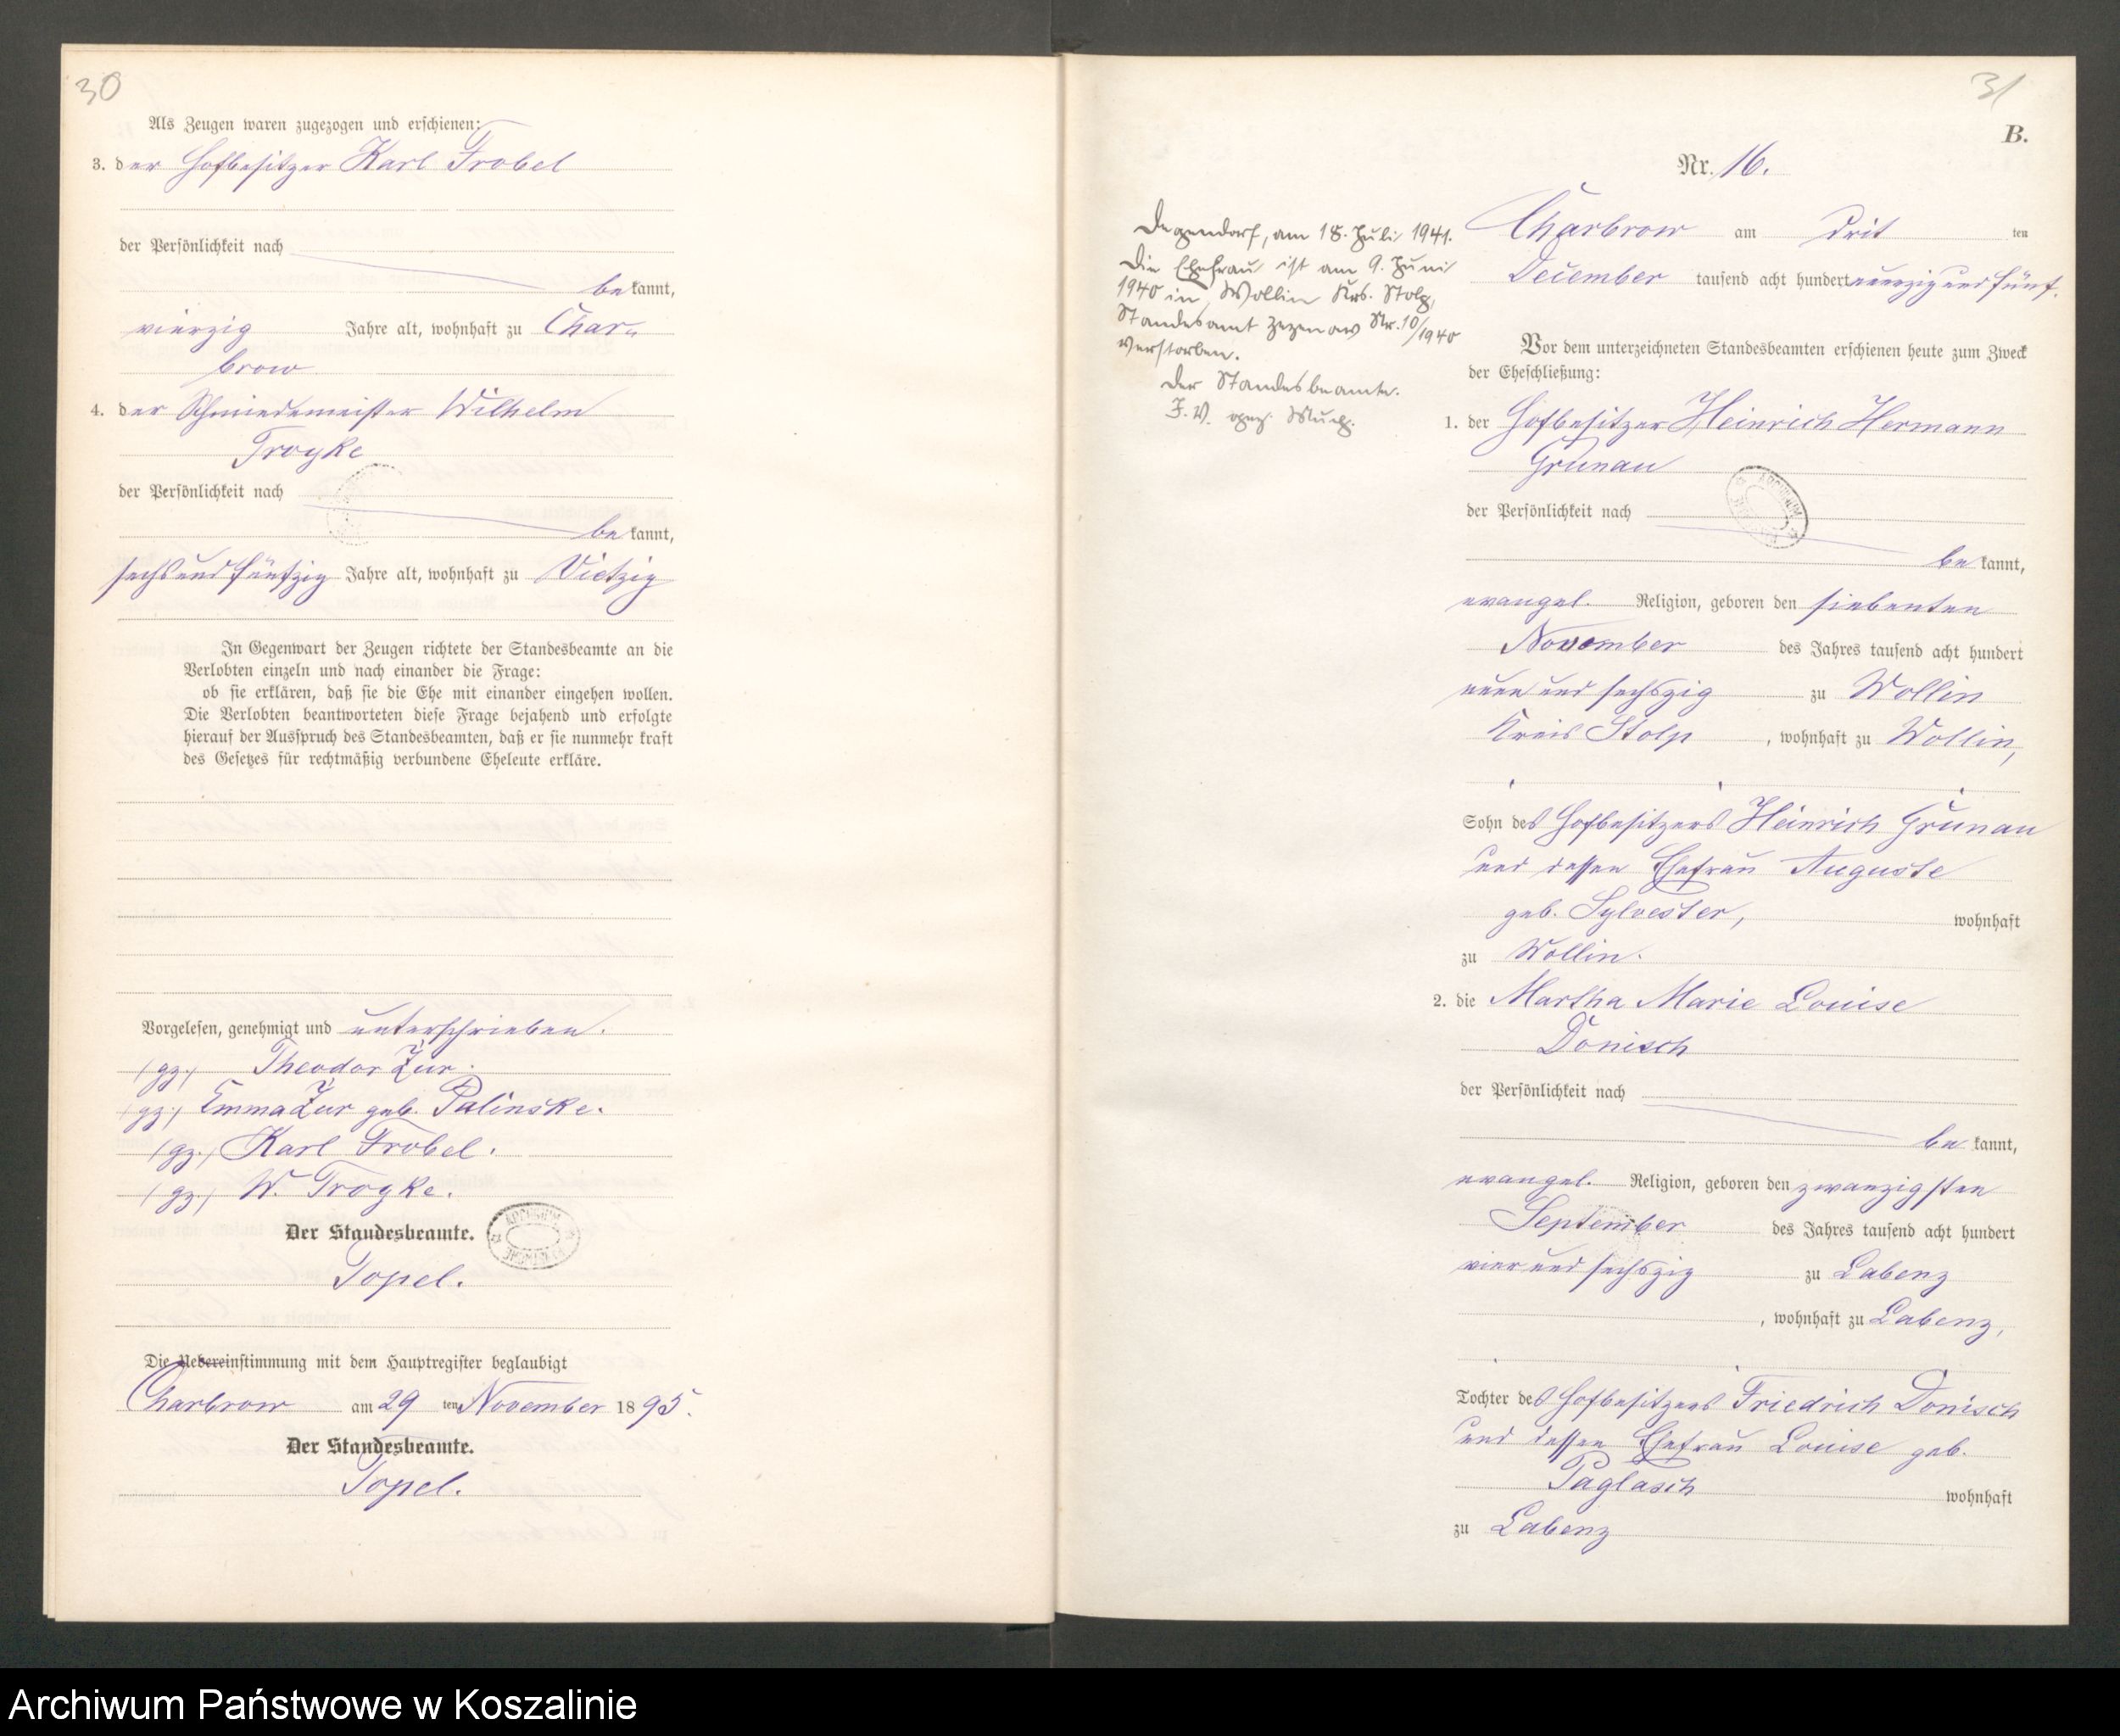 30
Als Zeugen waren zugezogen und erschienen:
3. der Hofbesitzer Karl Frobel
der Persönlichkeit nach
bekannt,
vierzig Jahre alt, wohnhaft zu Char-
brow
4. der Schmiedemeister Wilhelm
Troyke
der Persönlichkeit nach
bekannt,
sechsundfünfzig Jahre alt, wohnhaft zu Vietzig
In Gegenwart der Zeugen richtete der Standesbeamte an die
Verlobten einzeln und nach einander die Frage:
ob sie erklären, daß sie die Ehe mit einander eingehen wollen.
Die Verlobten beantworteten diese Frage bejahend und erfolgte
hierauf der Ausspruch des Standesbeamten, daß er sie nunmehr kraft
des Gesetzes für rechtmäßig verbundene Eheleute erkläre.
Vorgelesen, genehmigt und unterschrieben.
(gz.) Theodor Zur.
(gz.) Emma Zur geb. Palinske.
(gz.) Karl Frobel.
(gz.) W. Troyke.
Der Standesbeamte.
ARCHIWUM
Topel.
Die Uebereinstimmung mit dem Hauptregister beglaubigt
Charbrow am 29 ten November 1895.
Der Standesbeamte.
Topel.
31
B.
Nr. 16.
Charbrow am dritten
December tausend acht hundert neunzig und fünf.
Degendorf, am 18. Juli 1941.
Die Ehefrau ist am 9. Juni
1940 in Wollin Krs. Stolp,
Standesamt Zezenow Nr. 10/1940
verstorben.
Der Standesbeamte.
J. V. gez.
Vor dem unterzeichneten Standesbeamten erschienen heute zum Zweck
der Eheschließung:
1. der Hofbesitzer Heinrich Hermann
Grunau
ARCHIWUM
der Persönlichkeit nach
bekannt,
evangel. Religion, geboren den siebenten
November des Jahres tausend acht hundert
neun und sechszig zu Wollin
Kreis Stolp, wohnhaft zu Wollin,
Sohn des Hofbesitzers Heinrich Grunau
und dessen Ehefrau Auguste
geb. Sylvester, wohnhaft
zu Wollin.
2. die Martha Marie Louise
Donisch
der Persönlichkeit nach
bekannt,
evangel. Religion, geboren den zwanzigsten
September des Jahres tausend acht hundert
vier und sechszig zu Labenz
, wohnhaft zu Labenz,
Tochter des Hofbesitzers Friedrich Donisch
und dessen Ehefrau Louise geb.
Paglasch wohnhaft
zu Labenz
Archiwum Państwowe w Koszalinie